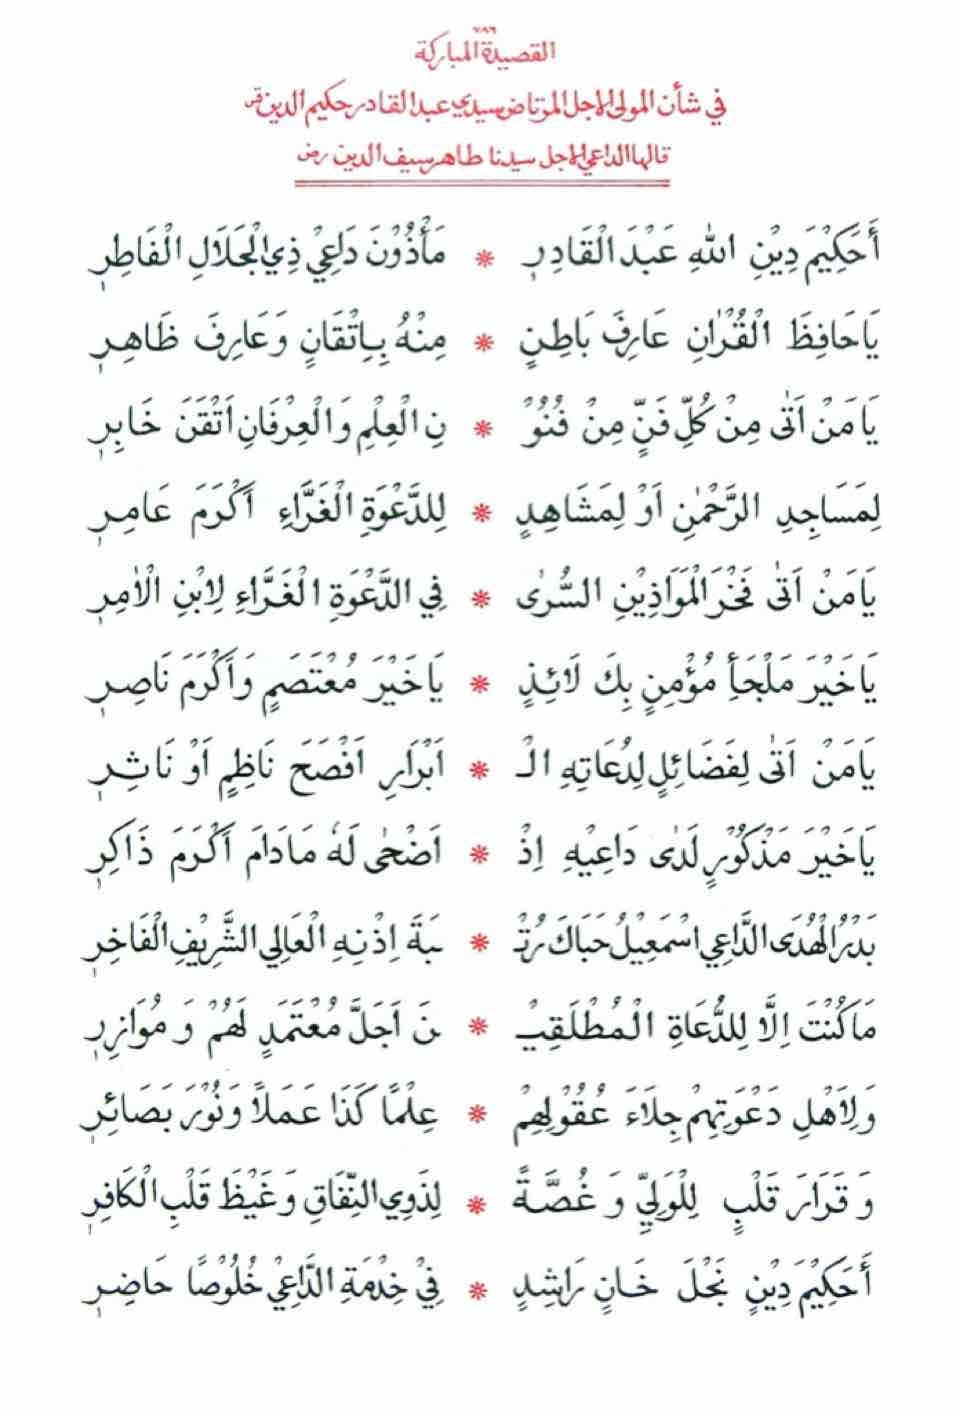 ٧٨٦
القصيدة المباركة
في شأن المولى الاجل المرتاض سيدي عبد القادر حكيم الدين قس
قالها الداعي الاجل سيدنا طاهر سيف الدين رض
أَحَكِيْمَ دِيْنِ اللهِ عَبْدَ الْقَادِرِ * مَأْذُوْنَ دَاعِيْ ذِي الْجَلَالِ الْفَاطِرِ
يَا حَافِظَ الْقُرْاٰنِ عَارِفَ بَاطِنٍ * مِنْهُ بِاِتْقَانٍ وَعَارِفَ ظَاهِرِ
يَا مَنْ اَتٰى مِنْ كُلِّ فَنٍّ مِنْ فُنُوْ * نِ الْعِلْمِ وَالْعِرْفَانِ اَتْقَنَ خَابِرِ
لِمَسَاجِدِ الرَّحْمٰنِ اَوْ لِمَشَاهِدٍ * لِلدَّعْوَةِ الْغَرَّاءِ اَكْرَمَ عَامِرِ
يَا مَنْ اَتٰى فَخْرَ الْمَوَاذِيْنِ السُّرٰى * فِي الدَّعْوَةِ الْغَرَّاءِ لِابْنِ الْاٰمِرِ
يَا خَيْرَ مَلْجَأِ مُؤْمِنٍ بِكَ لَائِذٍ * يَا خَيْرَ مُعْتَصَمٍ وَأَكْرَمَ نَاصِرِ
يَا مَنْ اَتٰى لِفَضَائِلٍ لِدُعَاتِهِ الْـ * اَبْرَارِ اَفْصَحَ نَاظِمٍ اَوْ نَاثِرِ
يَا خَيْرَ مَذْكُوْرٍ لَدٰى دَاعِيْهِ اِذْ * اَضْحٰى لَهٗ مَادَامَ اَكْرَمَ ذَاكِرِ
بَدْرُ الْهُدَى الدَّاعِي اسْمَعِيْلُ حَبَاكَ رُتْـ * ـبَةَ اِذْنِهِ الْعَالِي الشَّرِيْفِ الْفَاخِرِ
مَا كُنْتَ اِلَّا لِلدُّعَاةِ الْمُطْلَقِيْـ * ـنَ اَجَلَّ مُعْتَمَدٍ لَهُمْ وَ مُوَازِرِ
وَلِاَهْلِ دَعْوَتِهِمْ جِلَاءَ عُقُوْلِهِمْ * عِلْمًا كَذَا عَمَلًا وَنُوْرَ بَصَائِرِ
وَ قَرَارَ قَلْبٍ لِلْوَلِيِّ وَ غُصَّةً * لِذَوِي النِّفَاقِ وَغَيْظَ قَلْبِ الْكَافِرِ
أَحَكِيْمَ دِيْنٍ نَجْلَ خَانٍ رَاشِدٍ * فِيْ خِدْمَةِ الدَّاعِيْ خُلُوْصًا حَاضِرِ